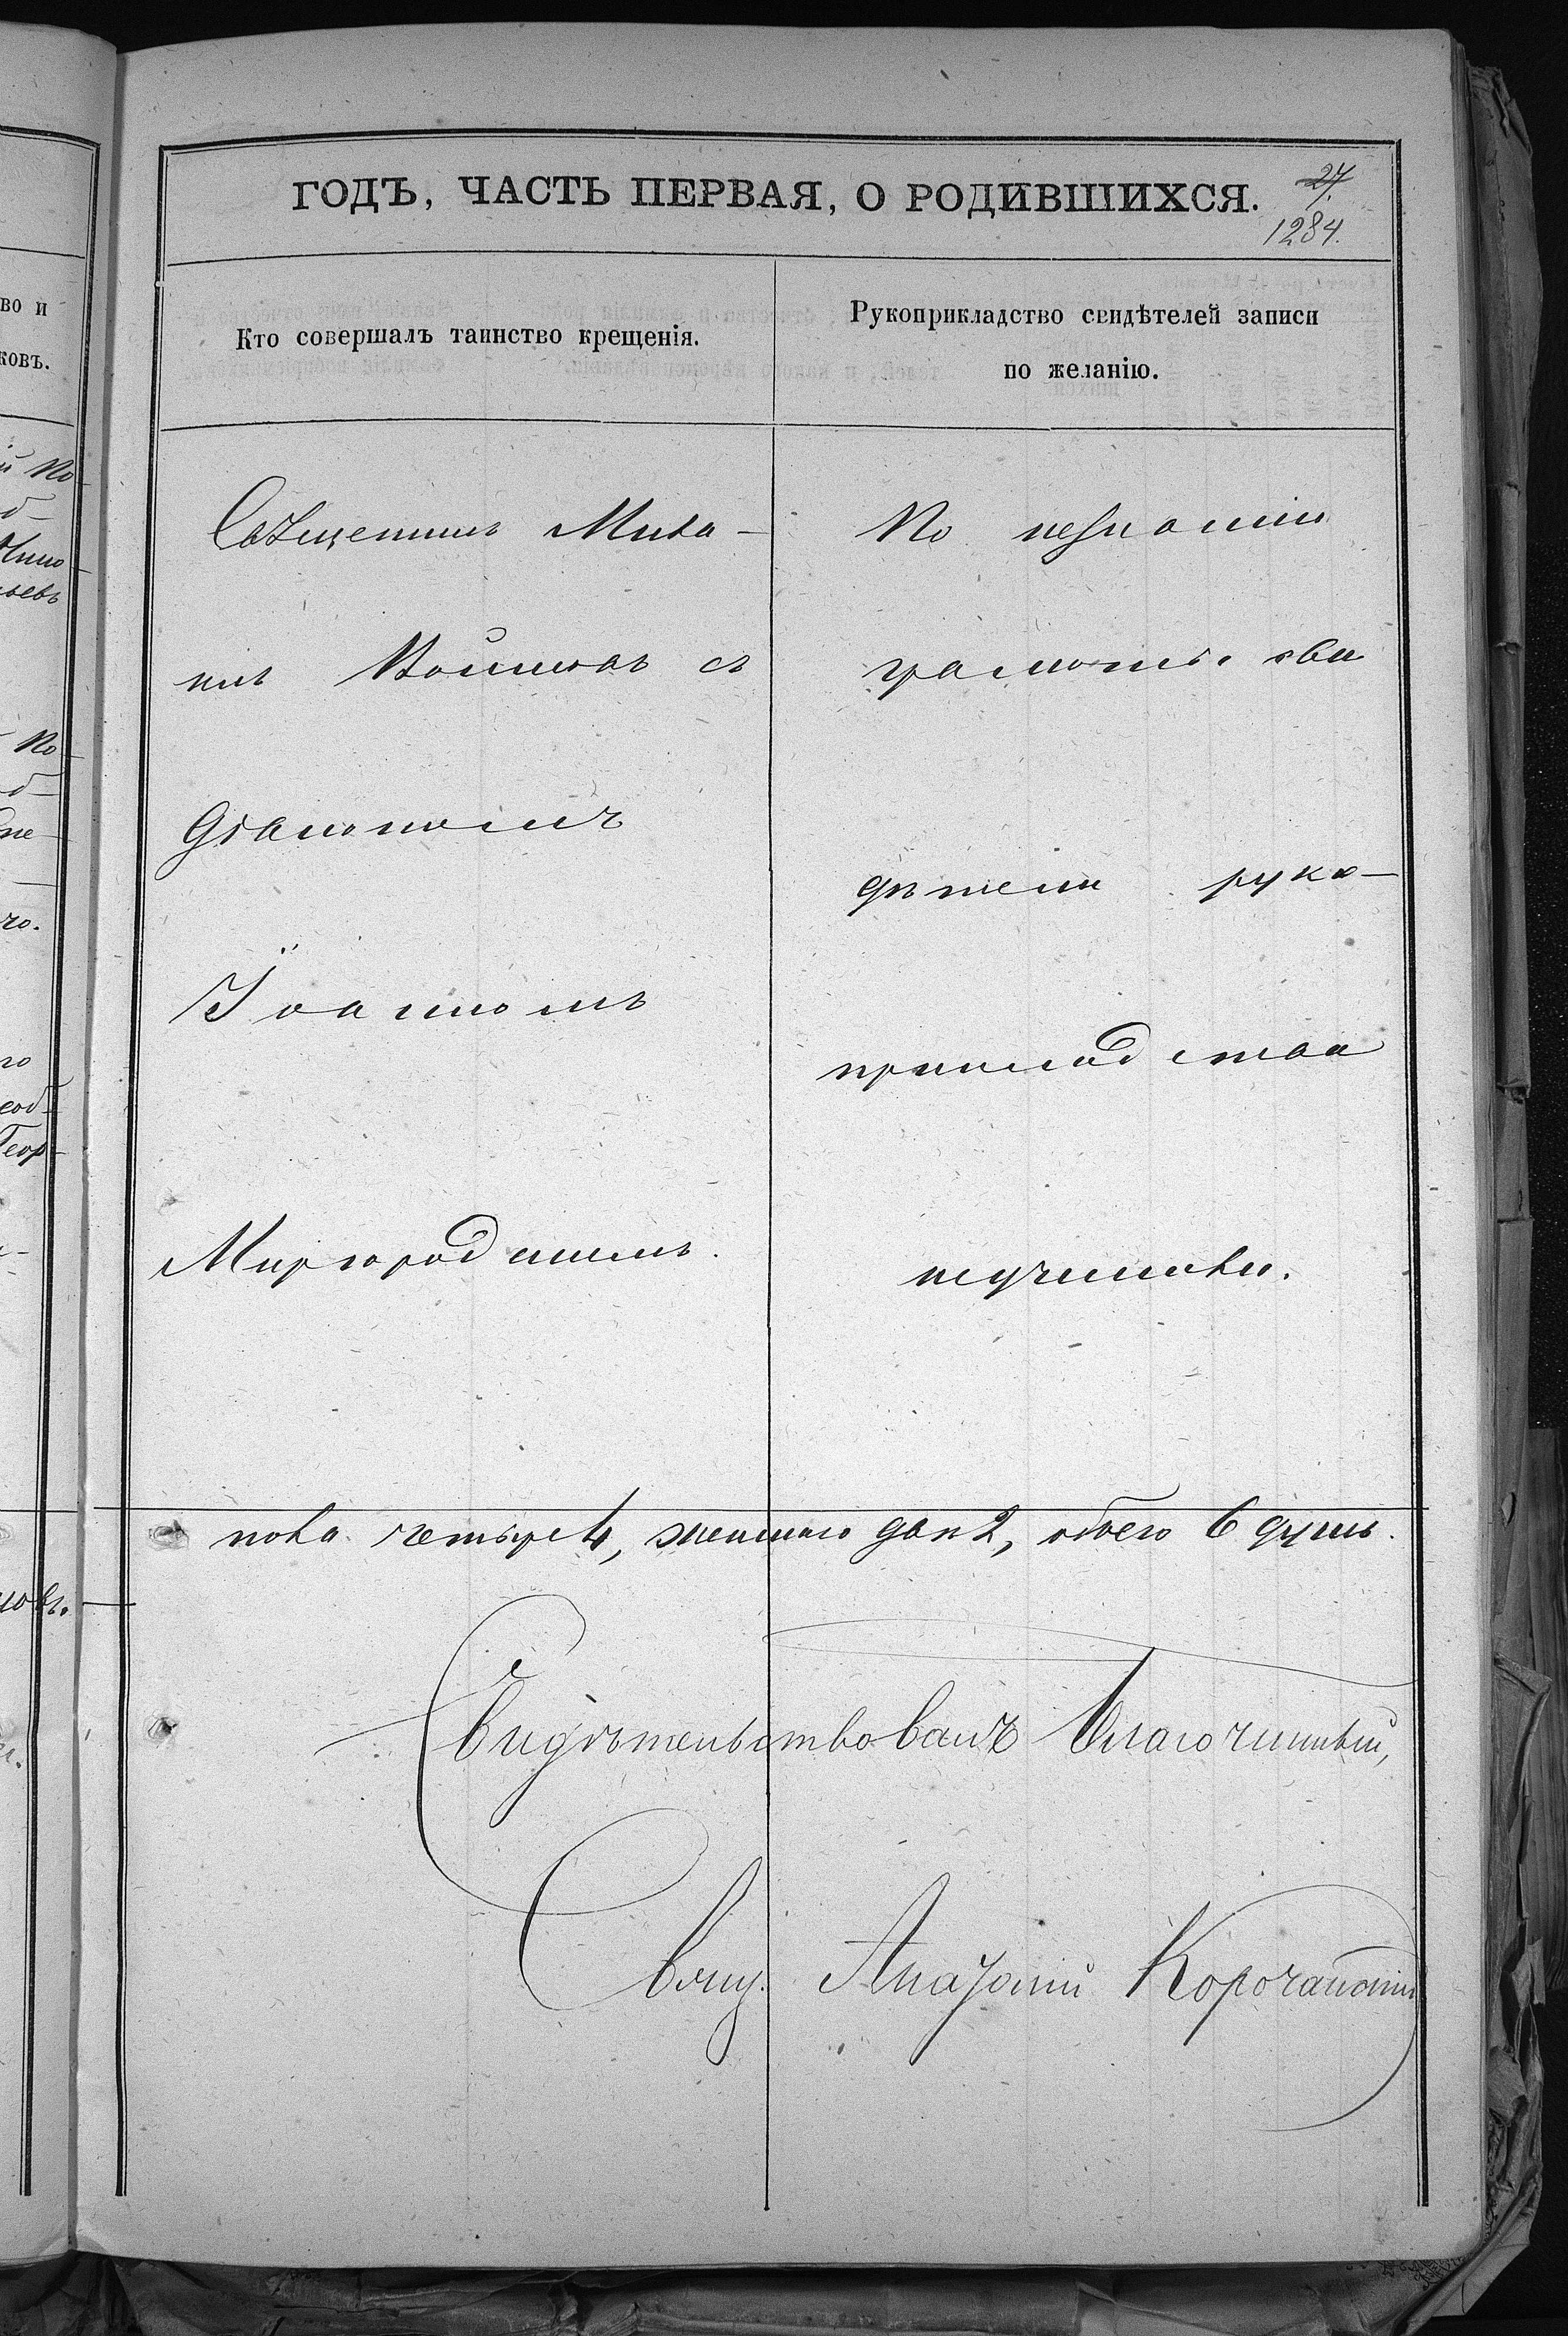 ГОДЪ, ЧАСТЬ ПЕРВАЯ, О РОДИВШИХСЯ.
27.
1284.
Кто совершалъ таинство крещенія.
Рукоприкладство свидѣтелей записи
по желанію.
Священникъ Миха-
илъ Войтовъ съ
Діакономъ
Іоанномъ
Миргородскимъ.
По незнанію
грамоты сви
дѣтели руко-
прикладства
не учинили.
пола четыре 4, женскаго два 2, обоего 6 душъ.
Свидѣтельствовалъ Благочинный,
Свящ. Анатолій Корочанскій
во и
ковъ.